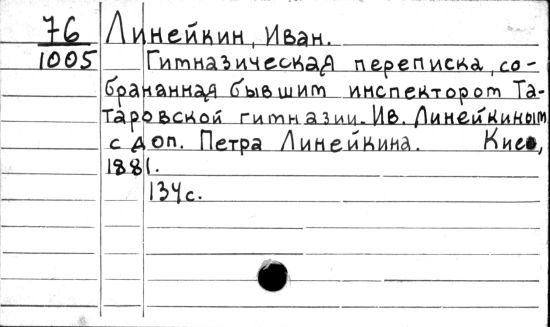 76 Линейкин, Иван.
1005 Гимназическая переписка, со-
бранная бывшим инспектором Та-
таровской гимназии. Ив. Линейкиным
с доп. Петра Линейкина. Киев,
1881.
134 с.